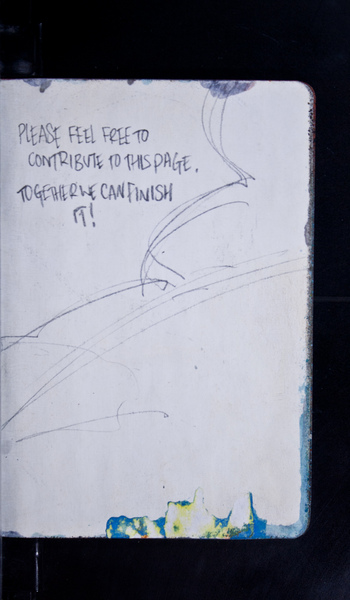 PLEASE FEEL FREE TO
CONTRIBUTE TO THIS PAGE.
TOGETHER WE CAN FINISH
IT!